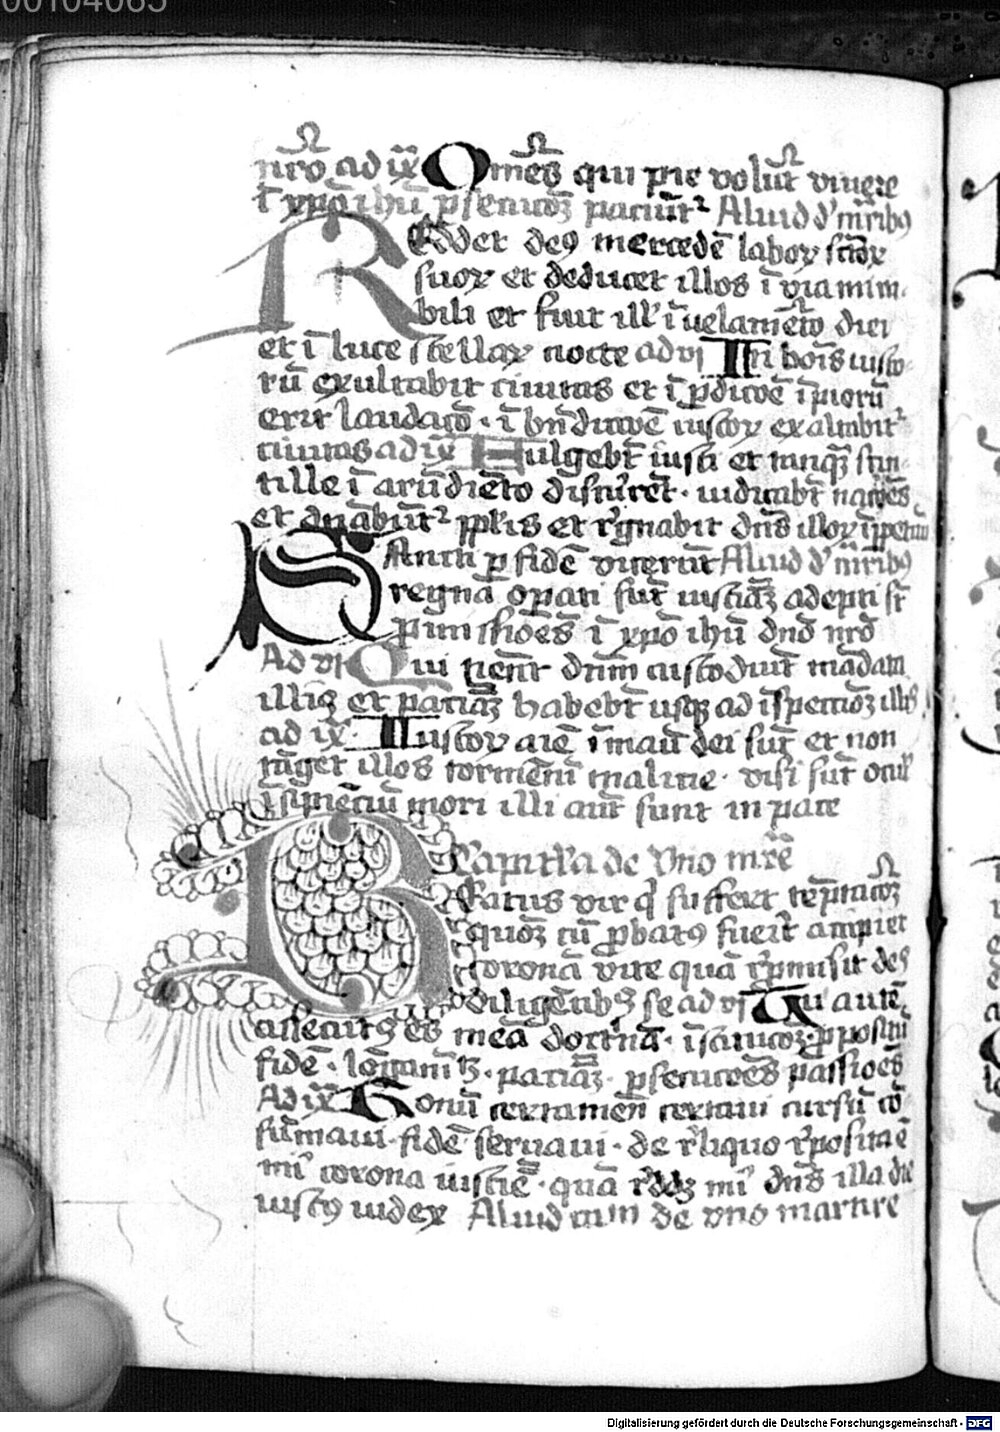 00104065
nr̄o ad ix Omēs qui pie volūt viuere
ī xp̄o ihū ꝑsecucōꝫ paciūt᷑ Aliud d' mr̄ibꝰ
Reddet deꝰ mercedē laboꝝ sc̄oꝝ
suoꝝ et deducet illos ī via mira
bili et fuit ill' ī velamēto diei
et ī luce stellaꝝ nocte ad vi In bonis iusto
rū exultabit ciuitas et ī ꝑdicōe īpiorū
erit laudacō · ī bn̄dicōe iustoꝝ exaltabit᷑
ciuitas ad ix Fulgebt̄ iusti et tanqꝫ scin
tille ī arūdīeto discurrēt · iudicabt̄ nacōes
et dn̄abūt᷑ pplis et rᷓgnabit dn̄s illoꝝ īꝑpetuū
Sancti ꝑ fidē vicerūt Aliud d' mr̄ibꝰ
regna oꝑati sūt iusticiāꝫ adepti sūt
ꝓmissiōes ī xp̄o ihū dnō nrō
Ad vi Qui timēt dnm̄ custodiūt mādata
illiꝰ et paciāꝫ habebt̄ usqꝫ ad īspectiōꝫ illiꝰ
ad ix Iustoꝝ aīe ī manū dei sūt et non
tāget illos tormētū malicie · visi sūt ocul'
īsipiēciū mori illi aūt sunt in pace
Capitl'a de vno mr̄e
Beatus vir q' suffert temptacōꝫ
quoꝫ cū ꝓbatꝰ fuerit accipiet
coronā vite quā rᷓpmisit deꝰ
diligētibꝰ se ad vi Tu autē
assecutꝰ es meā doctnā · ī sciucōꝫ ꝓpositū
fidē · lōganīmitꝫ · paciāꝫ · ꝑsecucōes passiōes
Ad ix Bonū certamen certaui cursū cō
sūmaui · fidē seruaui · de rᷓliquo rᷓposita ē
mi' corona iusticiē · quā rᷓddꝫ mi' dn̄s illa die
iustꝰ iudex Aliud cum de vno martire
Digitalisierung gefördert durch die Deutsche Forschungsgemeinschaft - DFG